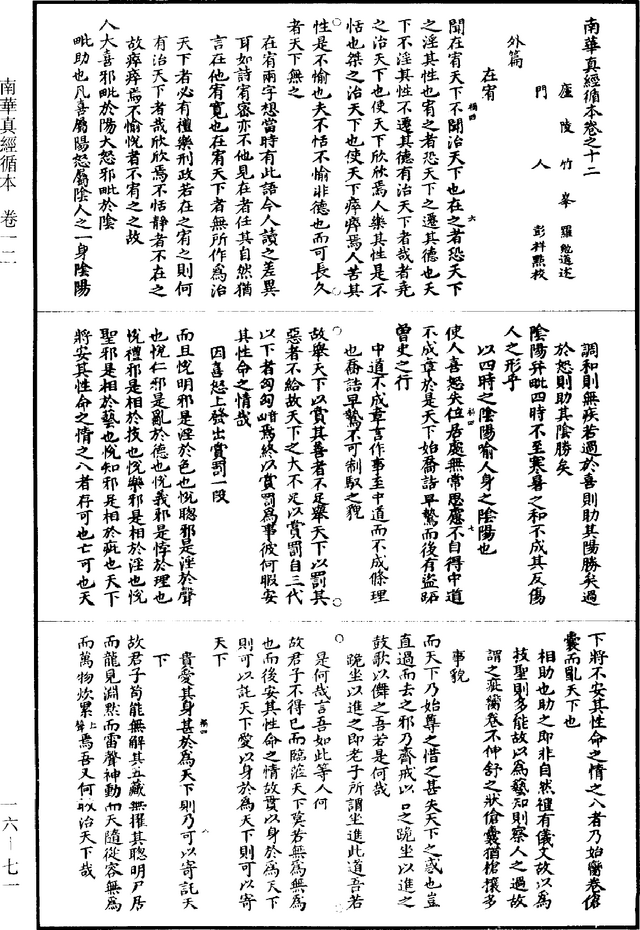 南華真經循本卷之十二
廬陵竹峯羅勉道述
門人彭祥點校
外篇
在宥
聞在宥天下不聞治天下也在之者恐天下
之淫其性也宥之者恐天下之遷其德也天
下不淫其性不遷其德有治天下者哉昔堯
之治天下也使天下欣欣焉人樂其性是不
恬也桀之治天下也使天下瘁瘁焉人苦其
性是不愉也夫不恬不愉非德也而可長久
者天下無之
在宥兩字想當時有此語今人讀之差異
耳如詩宥密亦不他見在者任其自然猶
言在他宥寬也在宥天下者無所作為治
天下者必有禮樂刑政若在之宥之則何
有治天下者哉欣欣焉不恬靜者不在之
故瘁瘁焉不愉悅者不宥之之故
人大喜邪毗於陽大怒邪毗於陰
毗助也凡喜屬陽怒屬陰人之一身陰陽
調和則無疾若過於喜則助其陽勝矣過
於怒則助其陰勝矣
陰陽并毗四時不至寒暑之和不成其反傷
人之形乎
以四時之陰陽喻人身之陰陽也
使人喜怒失位居處無常思慮不自得中道
不成章於是天下始喬詰卓鷙而後有盜跖
曾史之行
中道不成章言作事至中道而不成條理
也喬詰卓鷙不可制馭之貌
故舉天下以賞其善者不足舉天下以罰其
惡者不給故天下之大不足以賞罰自三代
以下者匈匈焉終以賞罰為事彼何暇安
其性命之情哉
因喜怒上發出賞罰一段
而且悅明邪是淫於色也悅聰邪是淫於聲
也悅仁邪是亂於德也悅義邪是悖於理也
悅禮邪是相於技也悅樂邪是相於淫也悅
聖邪是相於藝也悅知邪是相於疵也天下
將安其性命之情之八者存可也亡可也天
下將不安其性命之情之八者乃始臠卷傖
囊而亂天下也
相助也助之即非自然禮有儀文故以為
技聖則多能故以為藝知則察人之過故
謂之疵臠卷不伸舒之狀傖囊猶搶攘多
事貌
而天下乃始尊之惜之甚矣天下之惑也豈
直過而去之邪乃齊戒以口之跪坐以進之
鼓歌以儛之吾若是何哉
跪坐以進之即老子所謂坐進此道吾若
是何哉言吾如此等人何
故君子不得已而臨莅天下莫若無為無為
也而後安其性命之情故貴以身於為天下
則可以託天下愛以身於為天下則可以寄
天下
貴愛其身甚於為天下則乃可以寄託天
下
故君子苟能無解其五藏無擢其聰明尸居
而龍見淵默而雷聲神動而天隨從容無為
而萬物炊累焉吾又何暇治天下哉
南華真經循本 卷一二
一六—七一